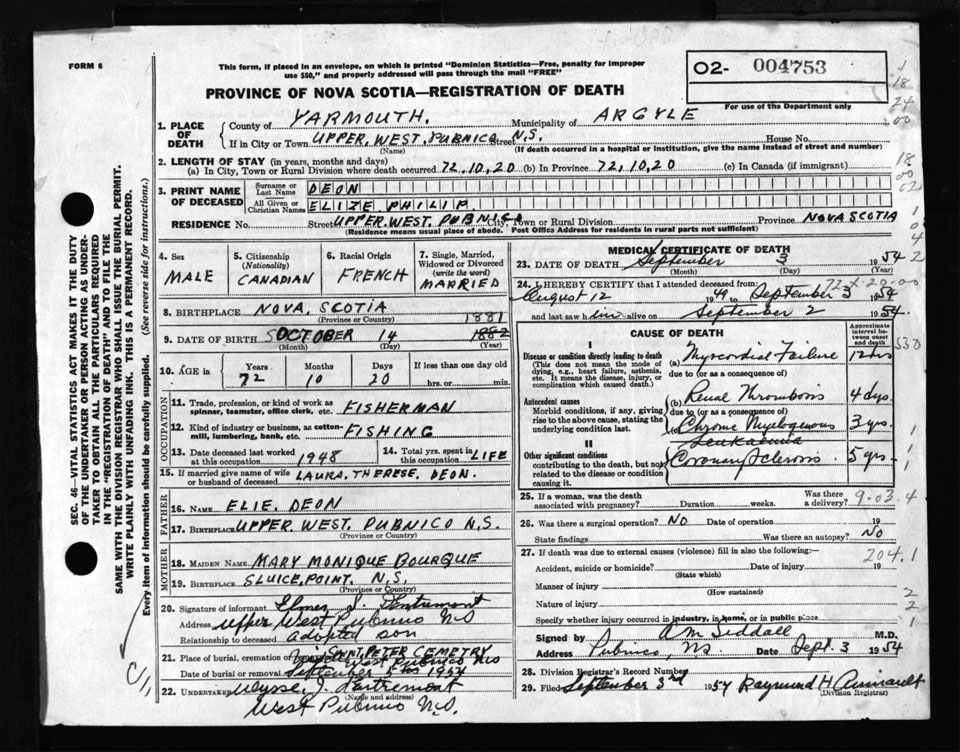 FORM 6
This form, if placed in an envelope, on which is printed "Dominion Statistics—Free, penalty for improper
use $50," and properly addressed will pass through the mail "FREE"
O2- 004753
For use of the Department only
PROVINCE OF NOVA SCOTIA—REGISTRATION OF DEATH
1. PLACE OF DEATH
County of YARMOUTH. Municipality of ARGYLE
If in City or Town UPPER, WEST, PUBNICO Street N.S. House No.
(Name) (If death occurred in a hospital or institution, give name instead of street and number)
2. LENGTH OF STAY (in years, months and days)
(a) In City, Town or Rural Division where death occurred 72, 10, 20 (b) In Province 72, 10, 20 (c) In Canada (if immigrant)
3. PRINT NAME OF DECEASED
Surname or Last Name DEON
All Given or Christian Names ELIZE PHILIP
RESIDENCE No. Street UPPER, WEST, PUBNICO City, Town or Rural Division Province NOVA SCOTIA
(Residence means usual place of abode. Post Office Address for residents in rural parts not sufficient)
4. Sex MALE
5. Citizenship (Nationality) CANADIAN
6. Racial Origin FRENCH
7. Single, Married, Widowed or Divorced (write the word) MARRIED
8. BIRTHPLACE NOVA, SCOTIA
(Province or Country)
1881
9. DATE OF BIRTH OCTOBER 14 1882
(Month) (Day) (Year)
10. AGE in Years 72 Months 10 Days 20 If less than one day old hrs. or min.
OCCUPATION
11. Trade, profession, or kind of work as spinner, teamster, office clerk, etc. FISHERMAN
12. Kind of industry or business, as cotton-mill, lumbering, bank, etc. FISHING
13. Date deceased last worked at this occupation 1948
14. Total yrs. spent in this occupation LIFE
15. If married give name of wife or husband of deceased LAURA, THERESE, DEON.
FATHER
16. NAME ELIE, DEON
17. BIRTHPLACE UPPER, WEST, PUBNICO N.S.
(Province or Country)
MOTHER
18. MAIDEN NAME MARY MONIQUE BOURQUE
19. BIRTHPLACE SLUICE, POINT. N.S.
(Province or Country)
20. Signature of informant Elmer J. d'Entremont
Address Upper West Pubnico NS
Relationship to deceased adopted son
21. Place of burial, cremation or removal SAINT, PETER CEMETRY
West Pubnico NS
Date of burial or removal September 1954
22. Undertaker Ulysse J. d'Entremont
(Name and address)
West Pubnico N.S.
MEDICAL CERTIFICATE OF DEATH
23. DATE OF DEATH September 3 1954
(Month) (Day) (Year)
24. I HEREBY CERTIFY that I attended deceased from:
August 12 1949 to September 3 1954
and last saw him alive on September 2 1954.
CAUSE OF DEATH
Approximate interval between onset and death
I
Disease or condition directly leading to death
(This does not mean the mode of dying, e.g., heart failure, asthenia, etc. It means the disease, injury, or complication which caused death.)
(a) Myocordial Failure 12 hrs
due to (or as a consequence of)
Antecedent causes
Morbid conditions, if any, giving rise to the above cause, stating the underlying condition last.
(b) Renal Thrombosis 4 dys.
due to (or as a consequence of)
(c) Chronic Myelogenous 3 yrs.
Leukaemia
II
Other significant conditions
contributing to the death, but not related to the disease or condition causing it.
Coronary Sclerosis. 5 yrs
25. If a woman, was the death associated with pregnancy? Duration weeks. Was there a delivery?
26. Was there a surgical operation? NO Date of operation 19
State findings Was there an autopsy? No
27. If death was due to external causes (violence) fill in also the following:—
Accident, suicide or homicide? Date of injury 19
(State which)
Manner of injury
(How sustained)
Nature of injury
Specify whether injury occurred in industry, in home, or in public place
Signed by A M Siddall M.D.
Address Pubnico, NS. Date Sept. 3 1954
28. Division Registrar's Record Number
29. Filed September 3rd 1954 Raymond H.
(Division Registrar)
SEC. 46—VITAL STATISTICS ACT MAKES IT THE DUTY
OF THE UNDERTAKER OR PERSON ACTING AS UNDER-
TAKER TO OBTAIN ALL THE PARTICULARS REQUIRED
IN THE "REGISTRATION OF DEATH" AND TO FILE THE
SAME WITH THE DIVISION REGISTRAR WHO SHALL ISSUE THE BURIAL PERMIT.
WRITE PLAINLY WITH UNFADING INK. THIS IS A PERMANENT RECORD.
Every item of information should be carefully supplied. (See reverse side for instructions.)